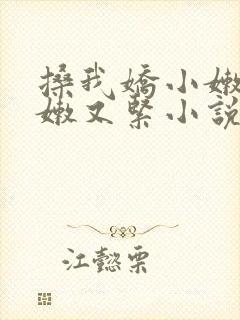 搡我嬌小嫩
嫩又緊小說
江懿栗